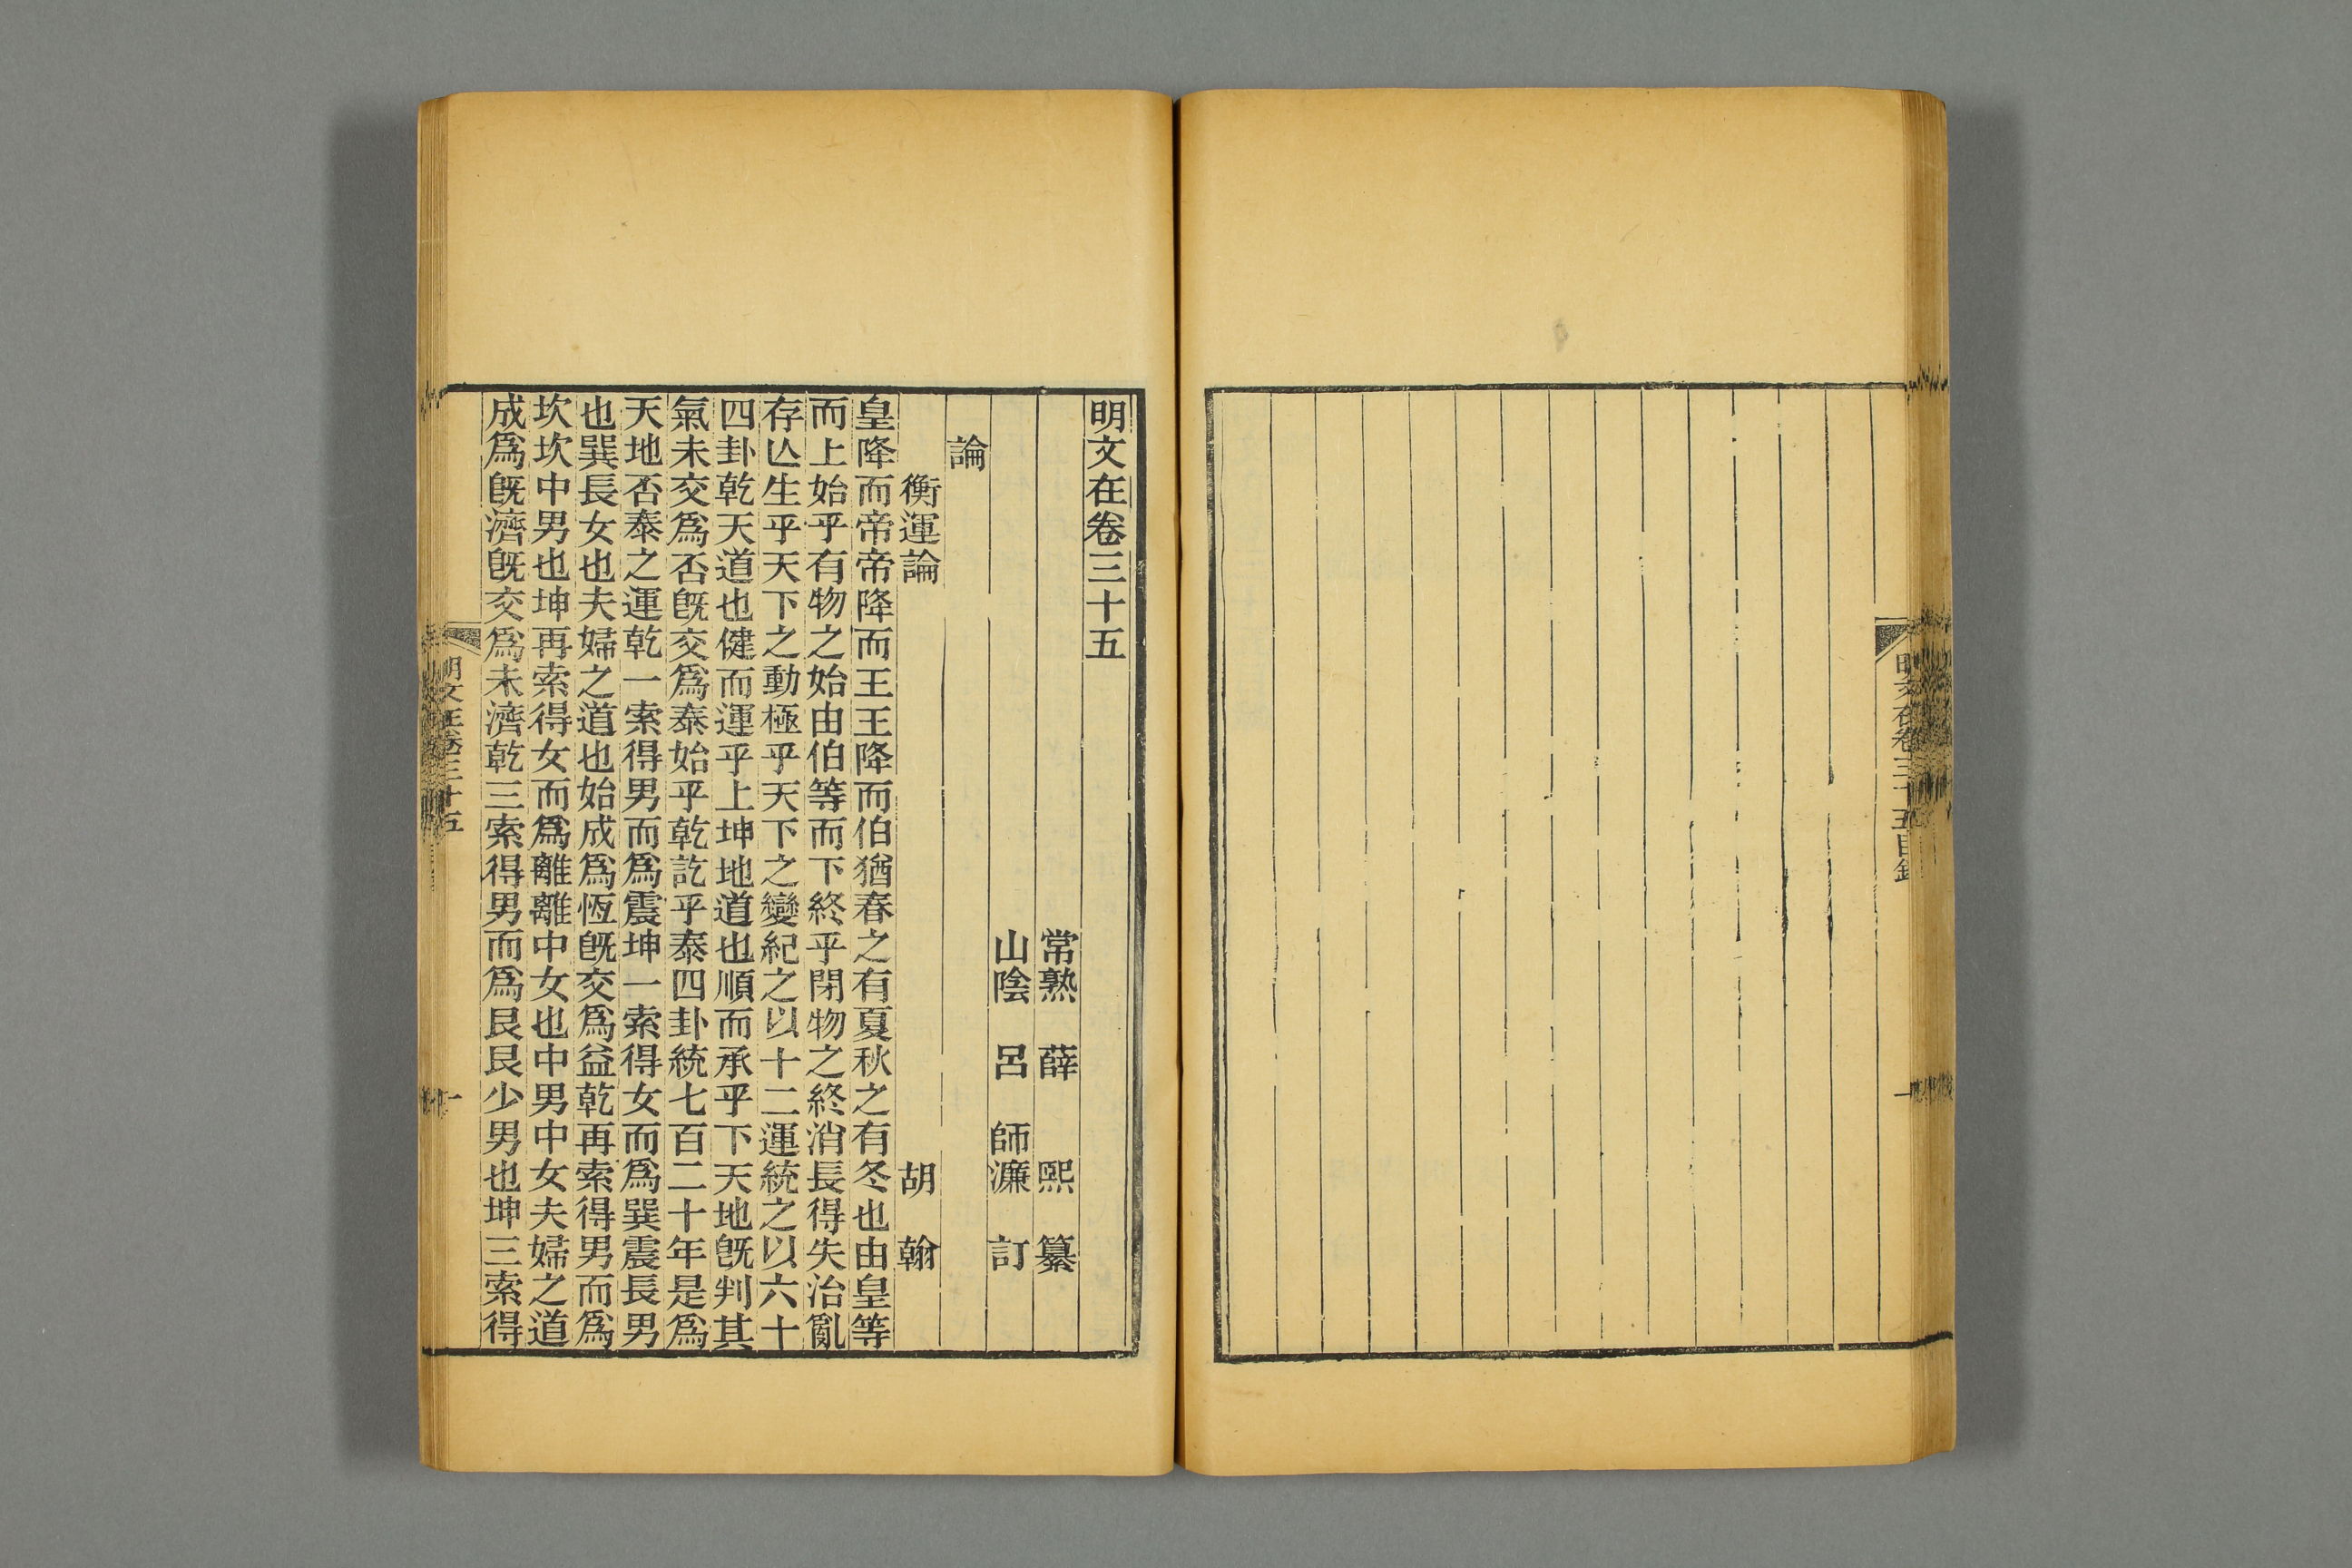 明文在卷三十五目錄
一
明文在卷三十五
常熟 薛 熙 纂
山陰 呂 師濂 訂
論
衡運論 胡 翰
皇降而帝帝降而王王降而伯猶春之有夏秋之有冬也由皇等
而上始乎有物之始由伯等而下終乎閉物之終消長得失治亂
存亾生乎天下之動極乎天下之變紀之以十二運統之以六十
四卦乾天道也健而運乎上坤地道也順而承乎下天地旣判其
氣未交爲否旣交爲泰始乎乾訖乎泰四卦統七百二十年是爲
天地否泰之運乾一索得男而爲震坤一索得女而爲巽震長男
也巽長女也夫婦之道也始成爲恆旣交爲益乾再索得男而爲
坎坎中男也坤再索得女而爲離離中女也中男中女夫婦之道
成爲旣濟旣交爲未濟乾三索得男而爲艮艮少男也坤三索得
明文在卷三十五
一